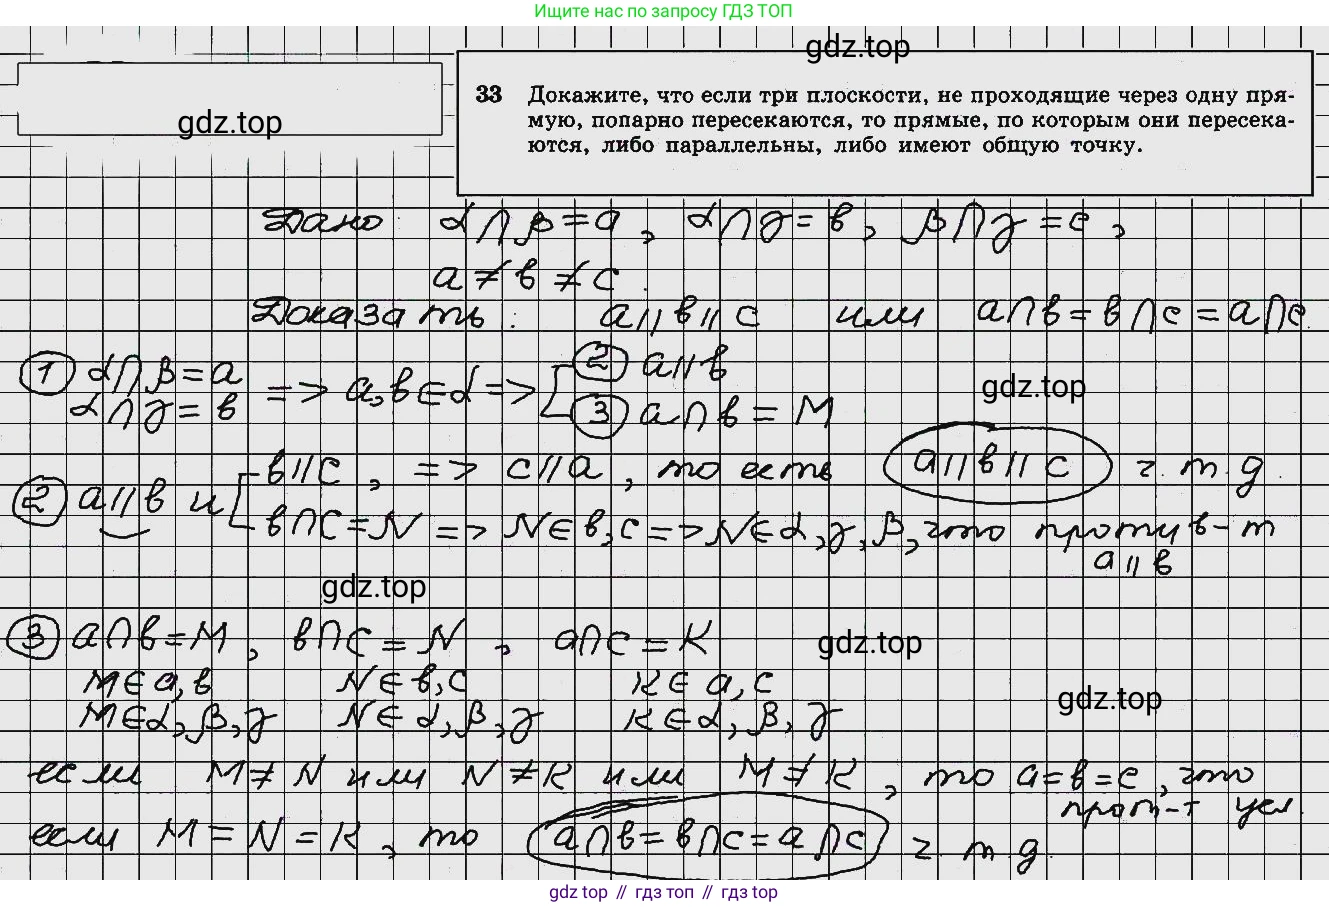 Ищите нас по запросу ГДЗ ТОП
gdz.top
gdz.top
33 Докажите, что если три плоскости, не проходящие через одну пря-
мую, попарно пересекаются, то прямые, по которым они пересека-
ются, либо параллельны, либо имеют общую точку.
Дано: α∩β=a, α∩γ=b, β∩γ=c,
a≠b≠c.
Доказать: a||b||c или a∩b=b∩c=a∩c.
① α∩β=a
α∩γ=b => a,b∈α => [ ② a||b
③ a∩b=M
gdz.top
② a||b и [ b||c, => c||a, то есть a||b||c ч.т.д
b∩c=N => N∈b,c => N∈α,γ,β, что против-т
a||b
gdz.top
③ a∩b=M, b∩c=N, a∩c=K
gdz.top
M∈a,b N∈b,c K∈a,c
M∈α,β,γ N∈α,β,γ K∈α,β,γ
gdz.top
если M≠N или N≠K или M≠K, то a=b=c, что
прот-т усл.
если M=N=K, то a∩b=b∩c=a∩c ч.т.д.
gdz top // гдз топ // gdz top